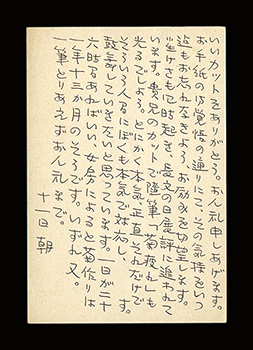 いいカットをありがとう。おん礼申しあげます。
お手紙の御覚悟の通りにて、その気持をいつ
迄もお忘れなきよう、お励みを切望します。
けさも四時起き、長文の日展評に追われて
います。貴兄のカットで随筆「菊疲れ」も
光るでしょう。とにかく本気、正直、それだけで
そろいろ人々にぼくも本気で対応し、す。
鼓舞していきたいと思っています。一日が二十
六時間あればいい、女房によると菊作りは
一年十三か月のそうです。いずれ又。
一筆とりあえずおん礼まで。
十一日 朝